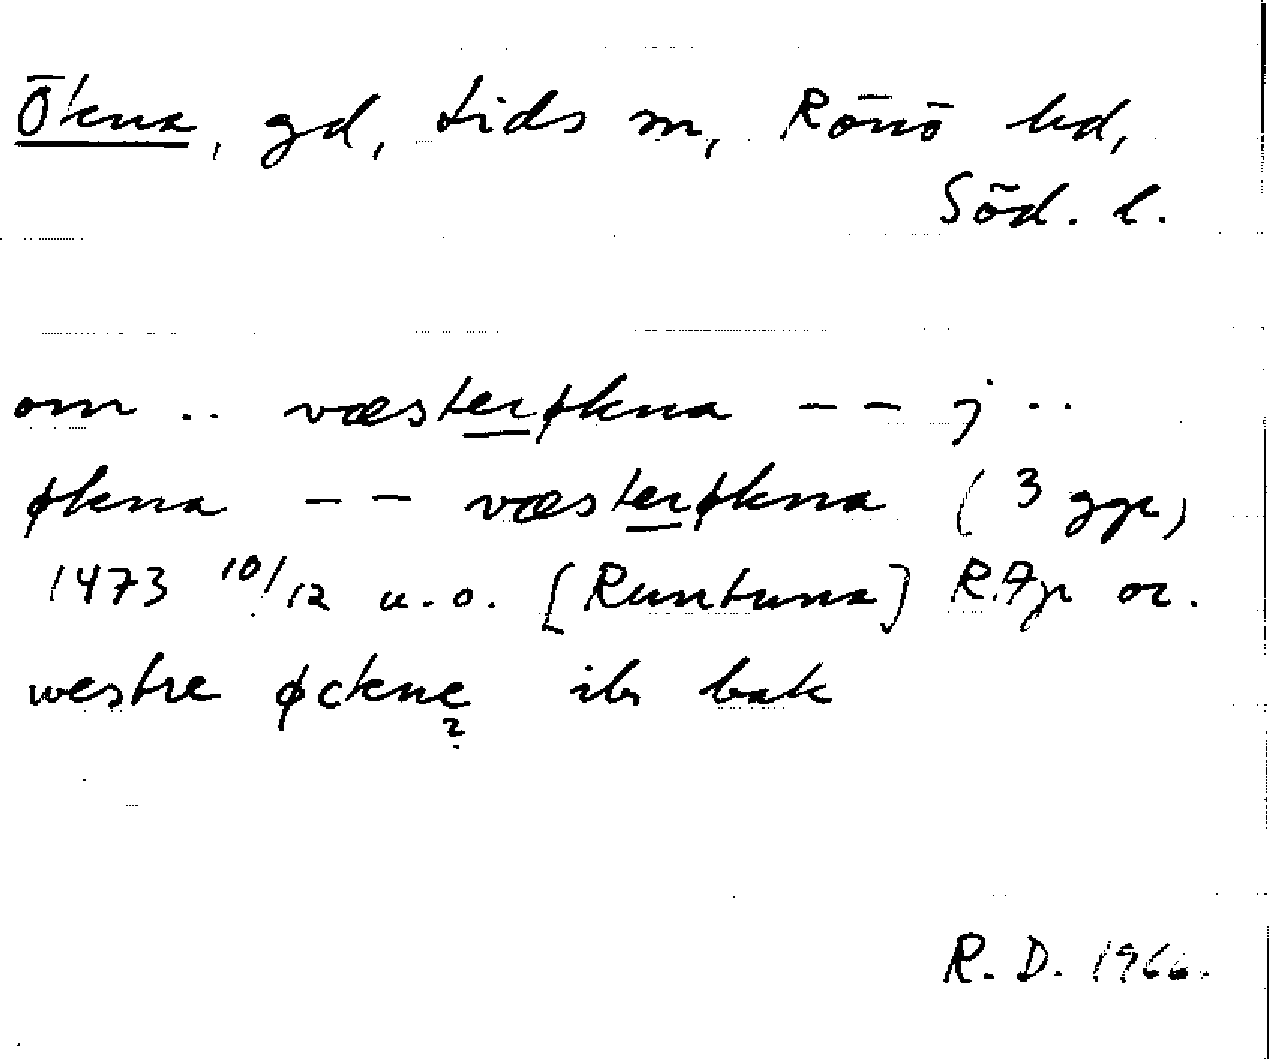 Ökna, gd, Lids sn, Rönö hd,
Söd. l.
om .. væsterøkna -- j ..
økna -- væsterøkna (3 ggr)
1473 10/12 u.o. [Runtuna] RAp or.
westre øckne ib bak
?
R. D. 1966.